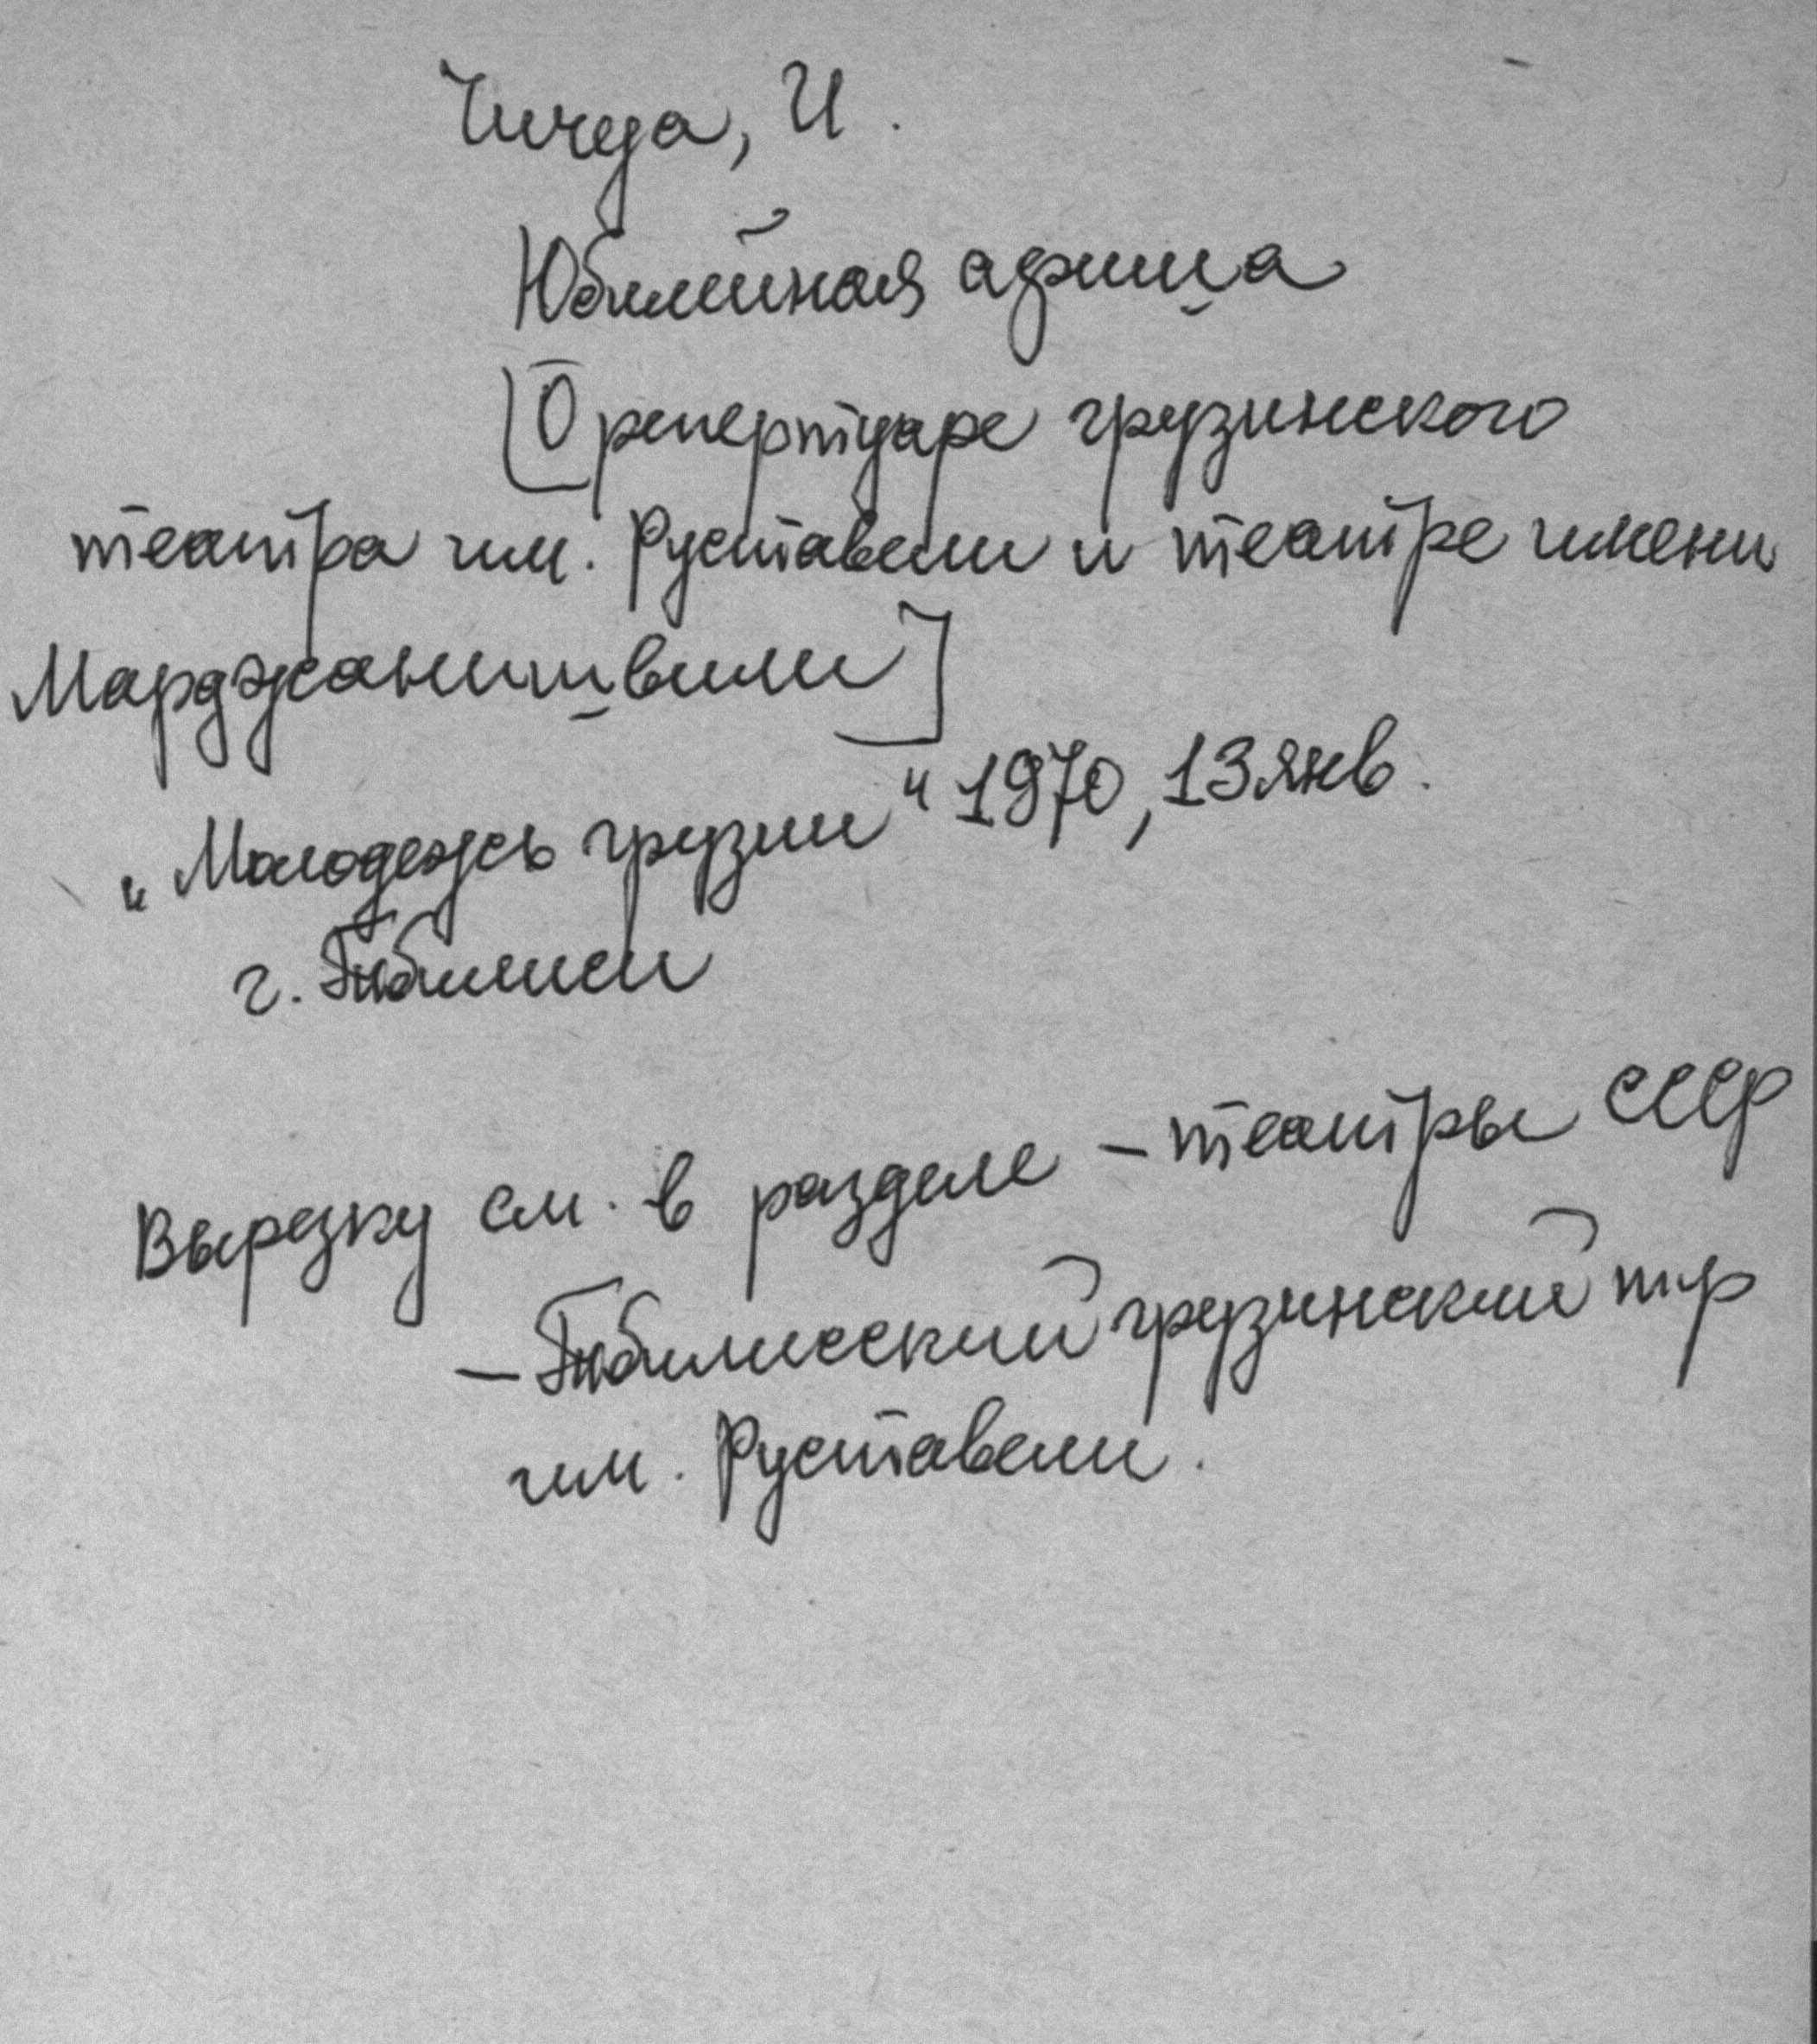 Чичуа, И.
Юбилейная афиша
[О репертуаре грузинского
театра им. Руставели и театре имени
Марджанишвили]
„Молодежь грузии“ 1970, 13 янв.
г. Тбилиси
Вырезку см. в разделе – театры СССР
– Тбилисский грузинский т-р
им. Руставели.